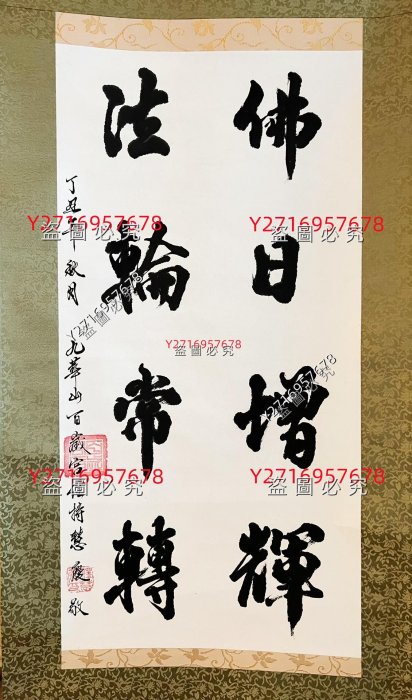 佛日增輝
法輪常轉
丁丑年秋月 九華山百歲宮住持慧慶敬
Y2716957678
盜圖必究
Y2716957678
盜圖必究
Y2716957678
盜圖必究
Y2716957678
盜圖必究
Y2716957678
盜圖必究
Y2716957678
盜圖必究
Y2716957678
盜圖必究